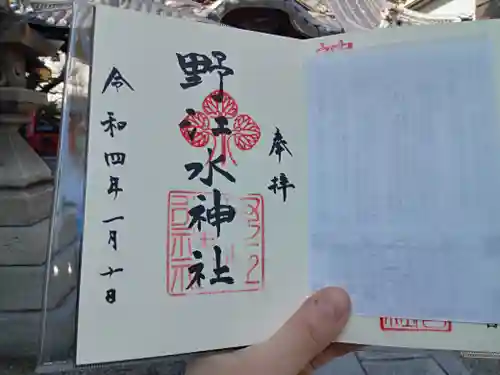 奉拝
野江水神社
令和四年一月十日